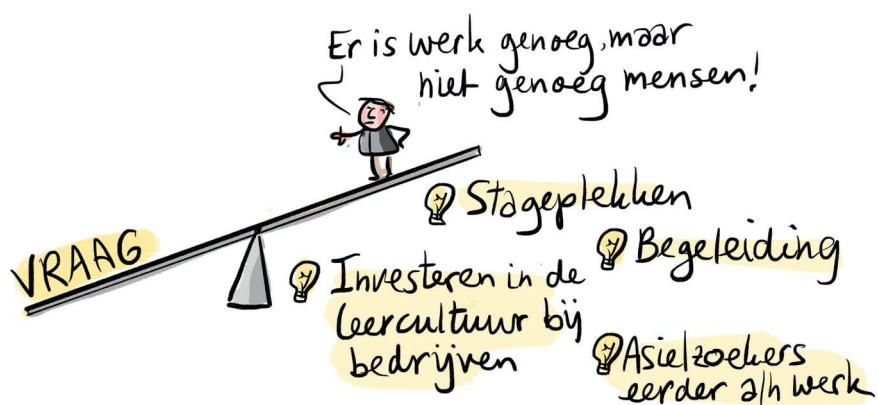 Er is werk genoeg, maar
niet genoeg mensen!
VRAAG
Stageplekken
Begeleiding
Investeren in de
leercultuur bij
bedrijven
Asielzoekers
eerder a/h werk